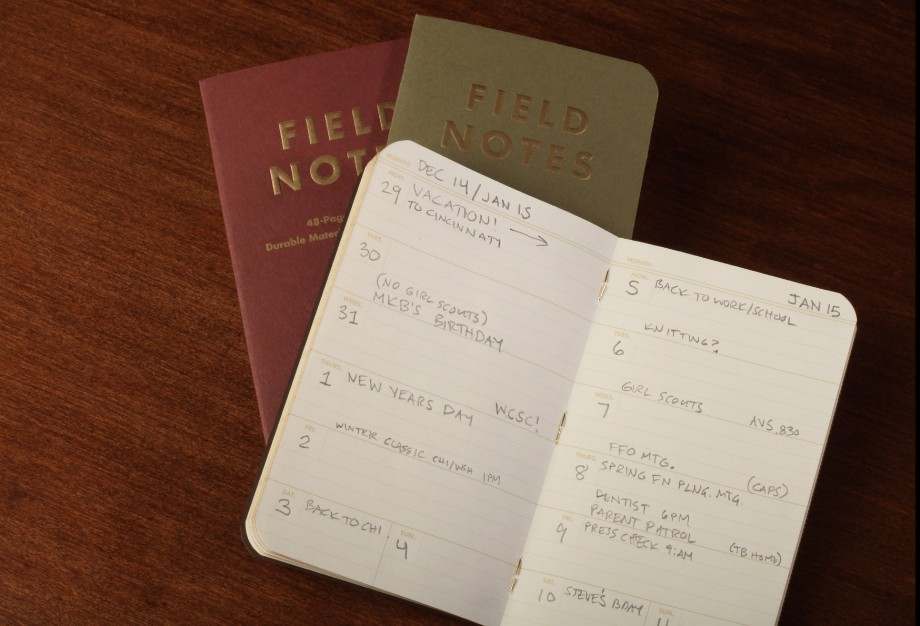 FIELD
NOTES
FIELD
NOT
48-Pag
Durable Mater
DEC 14/JAN 15
29 VACATION!
TO CINCINNATI
30
(NO GIRL SCOUTS)
31 MKB'S BIRTHDAY
1 NEW YEARS DAY WCSC!
2 WINTER CLASSIC CHI/WSH 1PM
3 BACK TO CHI
4
JAN 15
5 BACK TO WORK/SCHOOL
KNITTING?
6
GIRL SCOUTS
7 AVS 830
FFO MTG.
8 SPRING FN PLNG. MTG. (CAPS)
DENTIST 6PM
PARENT PATROL
9 PRESS CHECK 9:AM (TB HOME)
10 STEVE'S BDAY
11